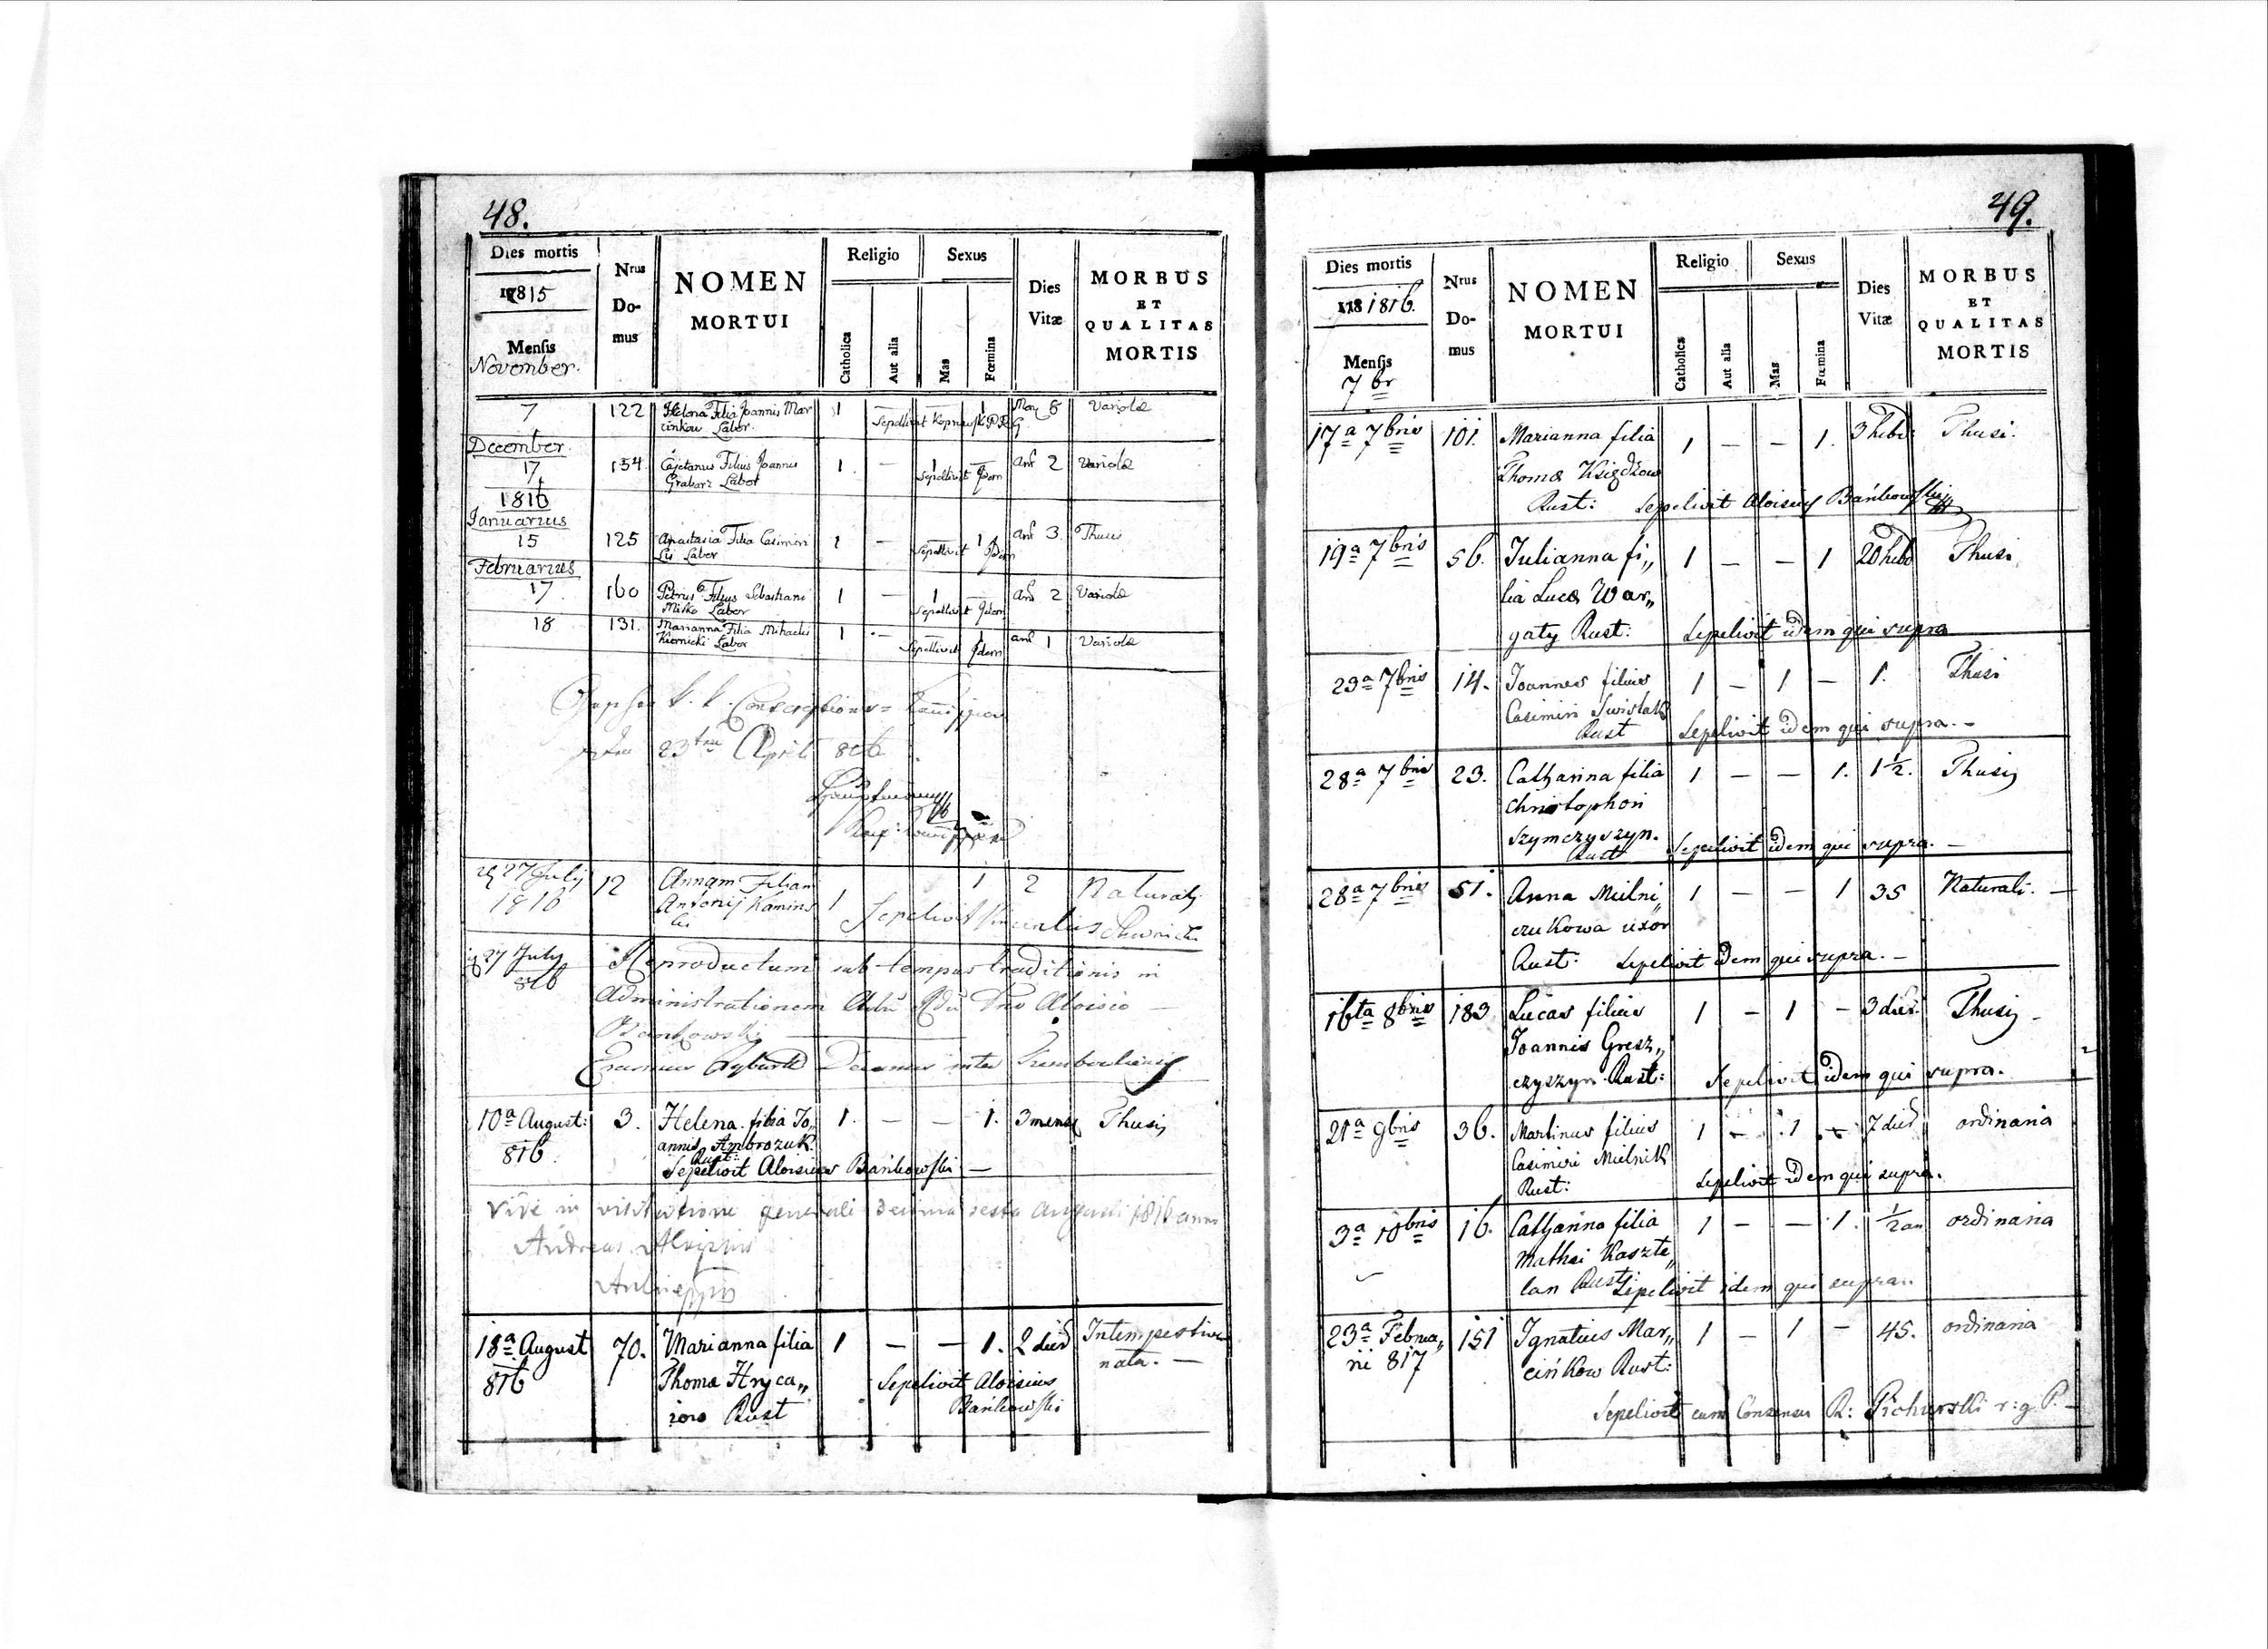 48.
Dies mortis
1815
Mensis
November.
Nrus
Do-
mus
NOMEN
MORTUI
Religio
Catholica
Aut alia
Sexus
Mas
Fœmina
Dies
Vitæ
MORBUS
ET
QUALITAS
MORTIS
7 122 Helena Filia Joannis Mar 1 — — 1 Men 8 Variola
cinkow Labor.
December.
17. 154. Cajetanus Filius Joannis 1. — 1 — an 2 Variola
Grabarz Labor Sepellivit Idem
1816
Januarius
15 125 Anastasia Filia Casimiri 1 — — 1 an 3. Thusis
Lis Labor Sepellivit Idem
Februarius
17. 160 Petrus Filius Sebastiani 1 — 1 — an 2 Variola
Misko Labor Sepellivit Idem
18 131. Marianna Filia Mihaelis 1 — — 1 an 1 Variola
Kiernicki Labor Sepellivit Idem
23 April 816
27 July 12 Annam Filiam 1 1 2 Naturalis
1816 Antonij Kamins
ki Sepelivit
27 July Reproductum sub tempus traditionis in
816 Administrationem Aloisio —
Bankowski
10a August: 3. Helena filia Jo„ 1. — — 1. 3 mens Thusis
816. annis Ambrozuk
Rust:
Sepelivit Aloisius Bańkowski —
Vidi in visitatione generali decima sexta Augusti 1816 anno
Andreas Aloysius
18a August 70. Marianna filia 1 — — 1. 2 dies Intempestive
816 Thoma Hryca„ nata. —
Rust Sepelivit Aloisius
Bańkowski
49.
Dies mortis
1816.
Mensis
7 br
Nrus
Do-
mus
NOMEN
MORTUI
Religio
Catholica
Aut alia
Sexus
Mas
Fœmina
Dies
Vitæ
MORBUS
ET
QUALITAS
MORTIS
17a 7bris 101. Marianna filia 1 — — 1. 3 hebd: Thusi.
Thoma Księdzow
Rust: Sepelivit Aloisius Bańkowski
19a 7bris 56. Julianna fi„ 1 — — 1 20 hebd Thusi
lia Luca War„
gaty Rust: Sepelivit idem qui supra
29a 7bris 14. Joannes filius 1 — 1 — 1. Thusi
Casimiri Swistak
Rust Sepelivit idem qui supra. —
28a 7bris 23. Catharina filia 1 — — 1. 1½. Thusis
Christophori
Szymczyszyn.
Rust Sepelivit idem qui supra. —
28a 7bris 51. Anna Mielni„ 1 — — 1 35 Naturali. —
czukowa uxor
Rust: Sepelivit idem qui supra. —
16ta 8bris 183 Lucas filius 1 — 1 — 3 dies Thusis —
Joannis Gresz„
czyszyn Rust: Sepelivit idem qui supra.
21a 9bris 36. Martinus filius 1 — 1 — 7 dies ordinaria
Casimiri Mielnik
Rust: Sepelivit idem qui supra.
3a 10bris 16. Catharina filia 1 — — 1. ½ an ordinaria
Mathei Kaszte„
lan Rust: Sepelivit idem qui supra.
23a Februa„ 151 Ignatius Mar„ 1 — 1 — 45. ordinaria
rii 817 cińkow Rust:
Sepelivit cum Consensu R: Pichurski r: g. P. —